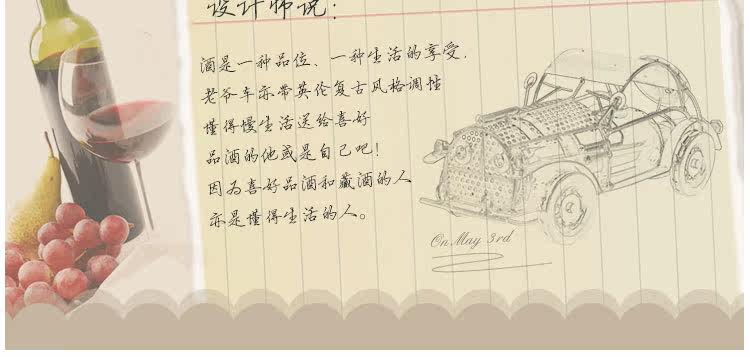 设计师说：
酒是一种品位、一种生活的享受.
老爷车亦带英伦复古风格调性
懂得慢生活送给喜好
品酒的他或是自己吧！
因为喜好品酒和藏酒的人
亦是懂得生活的人。
On May 3rd